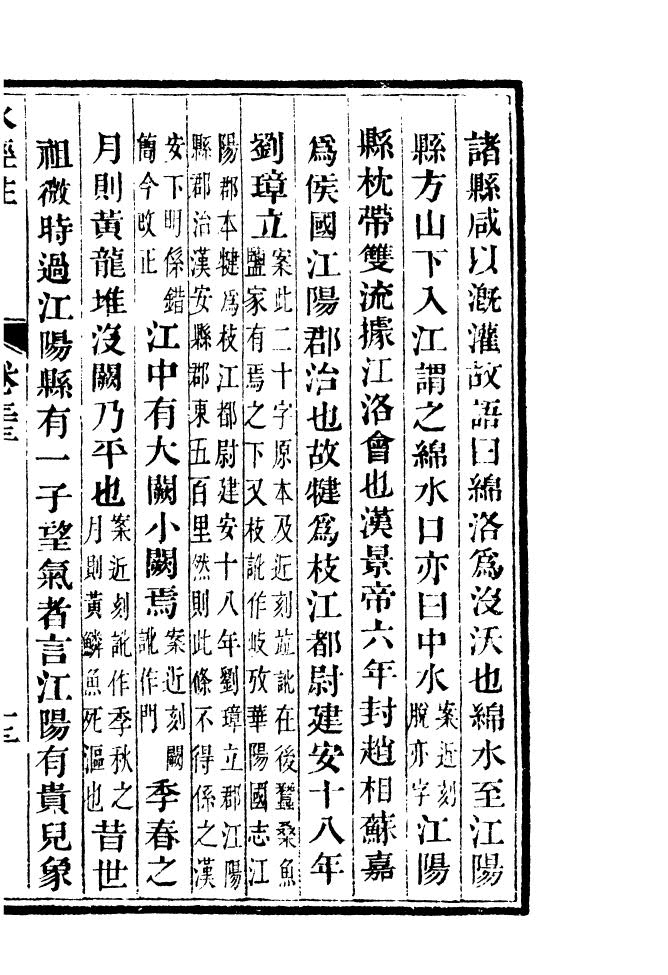 諸縣咸以漑灌故語曰綿洛爲沒沃也綿水至江陽
縣方山下入江謂之綿水口亦曰中水案近刻脫亦字江陽
縣枕帶雙流據江洛會也漢景帝六年封趙相蘇嘉
爲侯國江陽郡治也故犍爲枝江都尉建安十八年
劉璋立案此二十字原本及近刻並訛在後蠶桑魚鹽家有焉之下又枝訛作岐攷華陽國志江
陽郡本犍爲枝江都尉建安十八年劉璋立郡江陽縣郡治漢安縣郡東五百里然則此條不得係之漢
安下明係錯簡今改正江中有大闕小闕焉案近刻闕訛作門季春之
月則黃龍堆沒闕乃平也案近刻訛作季秋之月則黃鱗魚死漚也昔世
祖微時過江陽縣有一子望氣者言江陽有貴兒象
水經注 卷三十三 十三